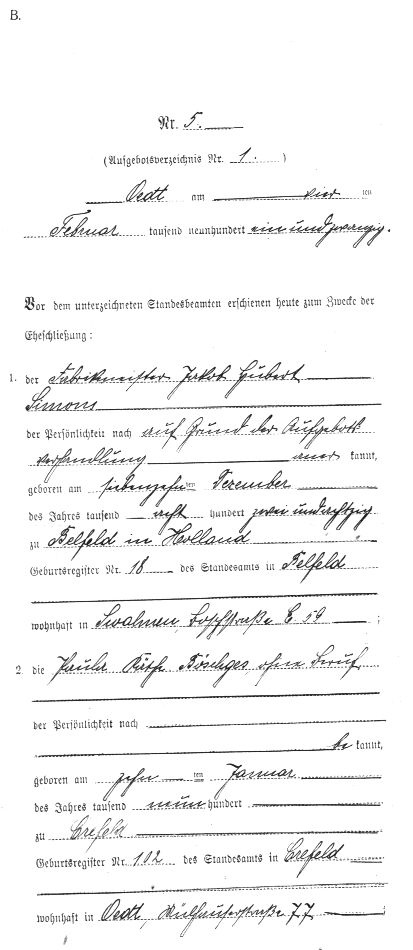 B.
Nr. 5.
(Aufgebotsverzeichnis Nr. 1.)
Oedt am vier ten
Februar tausend neunhundert ein und zwanzig.
Vor dem unterzeichneten Standesbeamten erschienen heute zum Zwecke der
Eheschließung:
1. der Fabrikmeister Jakob Hubert
Simons
der Persönlichkeit nach auf Grund der Aufgebots
verhandlung aner kannt,
geboren am siebenzehn ten Dezember
des Jahres tausend acht hundert zwei und achtzig
zu Belfeld in Holland
Geburtsregister Nr. 18 des Standesamts in Belfeld
wohnhaft in Swalmen, Boschstraße E 59 ;
2. die Paula Böschges, ohne Beruf
der Persönlichkeit nach
be kannt,
geboren am zehn ten Januar
des Jahres tausend neun hundert
zu Crefeld
Geburtsregister Nr. 102 des Standesamts in Crefeld
wohnhaft in Oedt, Mülhauserstraße 77 ;